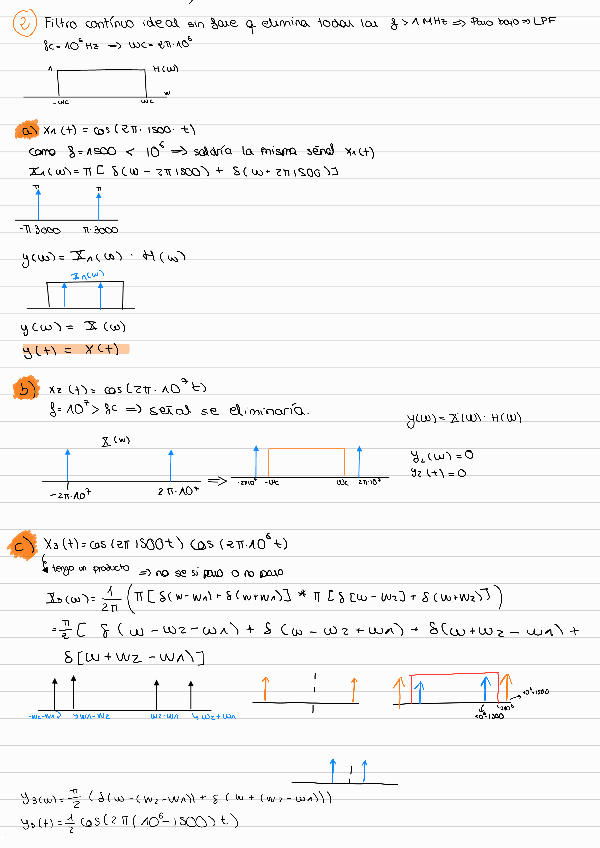 2) Filtro continuo ideal sin fase q elimina todas las f > 1 MHz ⇒ Paso bajo ⇒ LPF
fc = 10⁶ Hz → wc = 2π·10⁶
1 H(w)
-wc wc w
a) x₁(t) = cos(2π·1500·t)
como f = 1500 < 10⁶ ⇒ saldría la misma señal x₁(t)
X₁(w) = π[δ(w - 2π1500) + δ(w + 2π1500)]
π π
-π·3000 π·3000
y(w) = X₁(w) · H(w)
X₁(w)
y(w) = X(w)
y(t) = x(t)
b) x₂(t) = cos(2π·10⁷t)
f = 10⁷ > fc ⇒ señal se eliminaría.
y(w) = X(w) · H(w)
X(w)
y₂(w) = 0
y₂(t) = 0
-2π·10⁷ 2π·10⁷ ⇒ -2π10⁷ -wc wc 2π·10⁷
c) x₃(t) = cos(2π1500t) cos(2π·10⁶t)
tengo un producto ⇒ no se si pasa o no pasa
X₃(w) = 1/2π (π[δ(w-w1)+δ(w+w1)] * π[δ[w-w2]+δ(w+w2)])
= π/2 [δ(w-w2-w1) + δ(w-w2+w1) + δ(w+w2-w1) +
δ[w+w2-w1)]
-w2-w1 w1-w2 w2-w1 w2+w1
10⁶+1500
10⁶-1500
y₃(w) = π/2 (δ(w-(w2-w1)) + δ(w+(w2-w1)))
y₃(t) = 1/2 cos(2π(10⁶-1500)t)